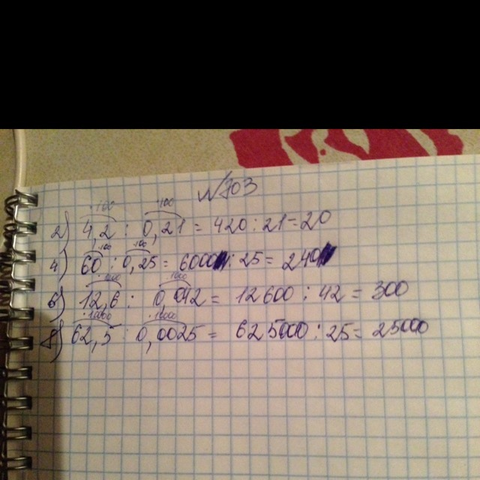 №703
·100 ·100
2) 4,2 : 0,21 = 420 : 21 = 20
·100 ·100
4) 60 : 0,25 = 6000 : 25 = 240
·1000 ·1000
6) 12,6 : 0,042 = 12600 : 42 = 300
·10000 ·10000
8) 62,5 : 0,0025 = 625000 : 25 = 25000